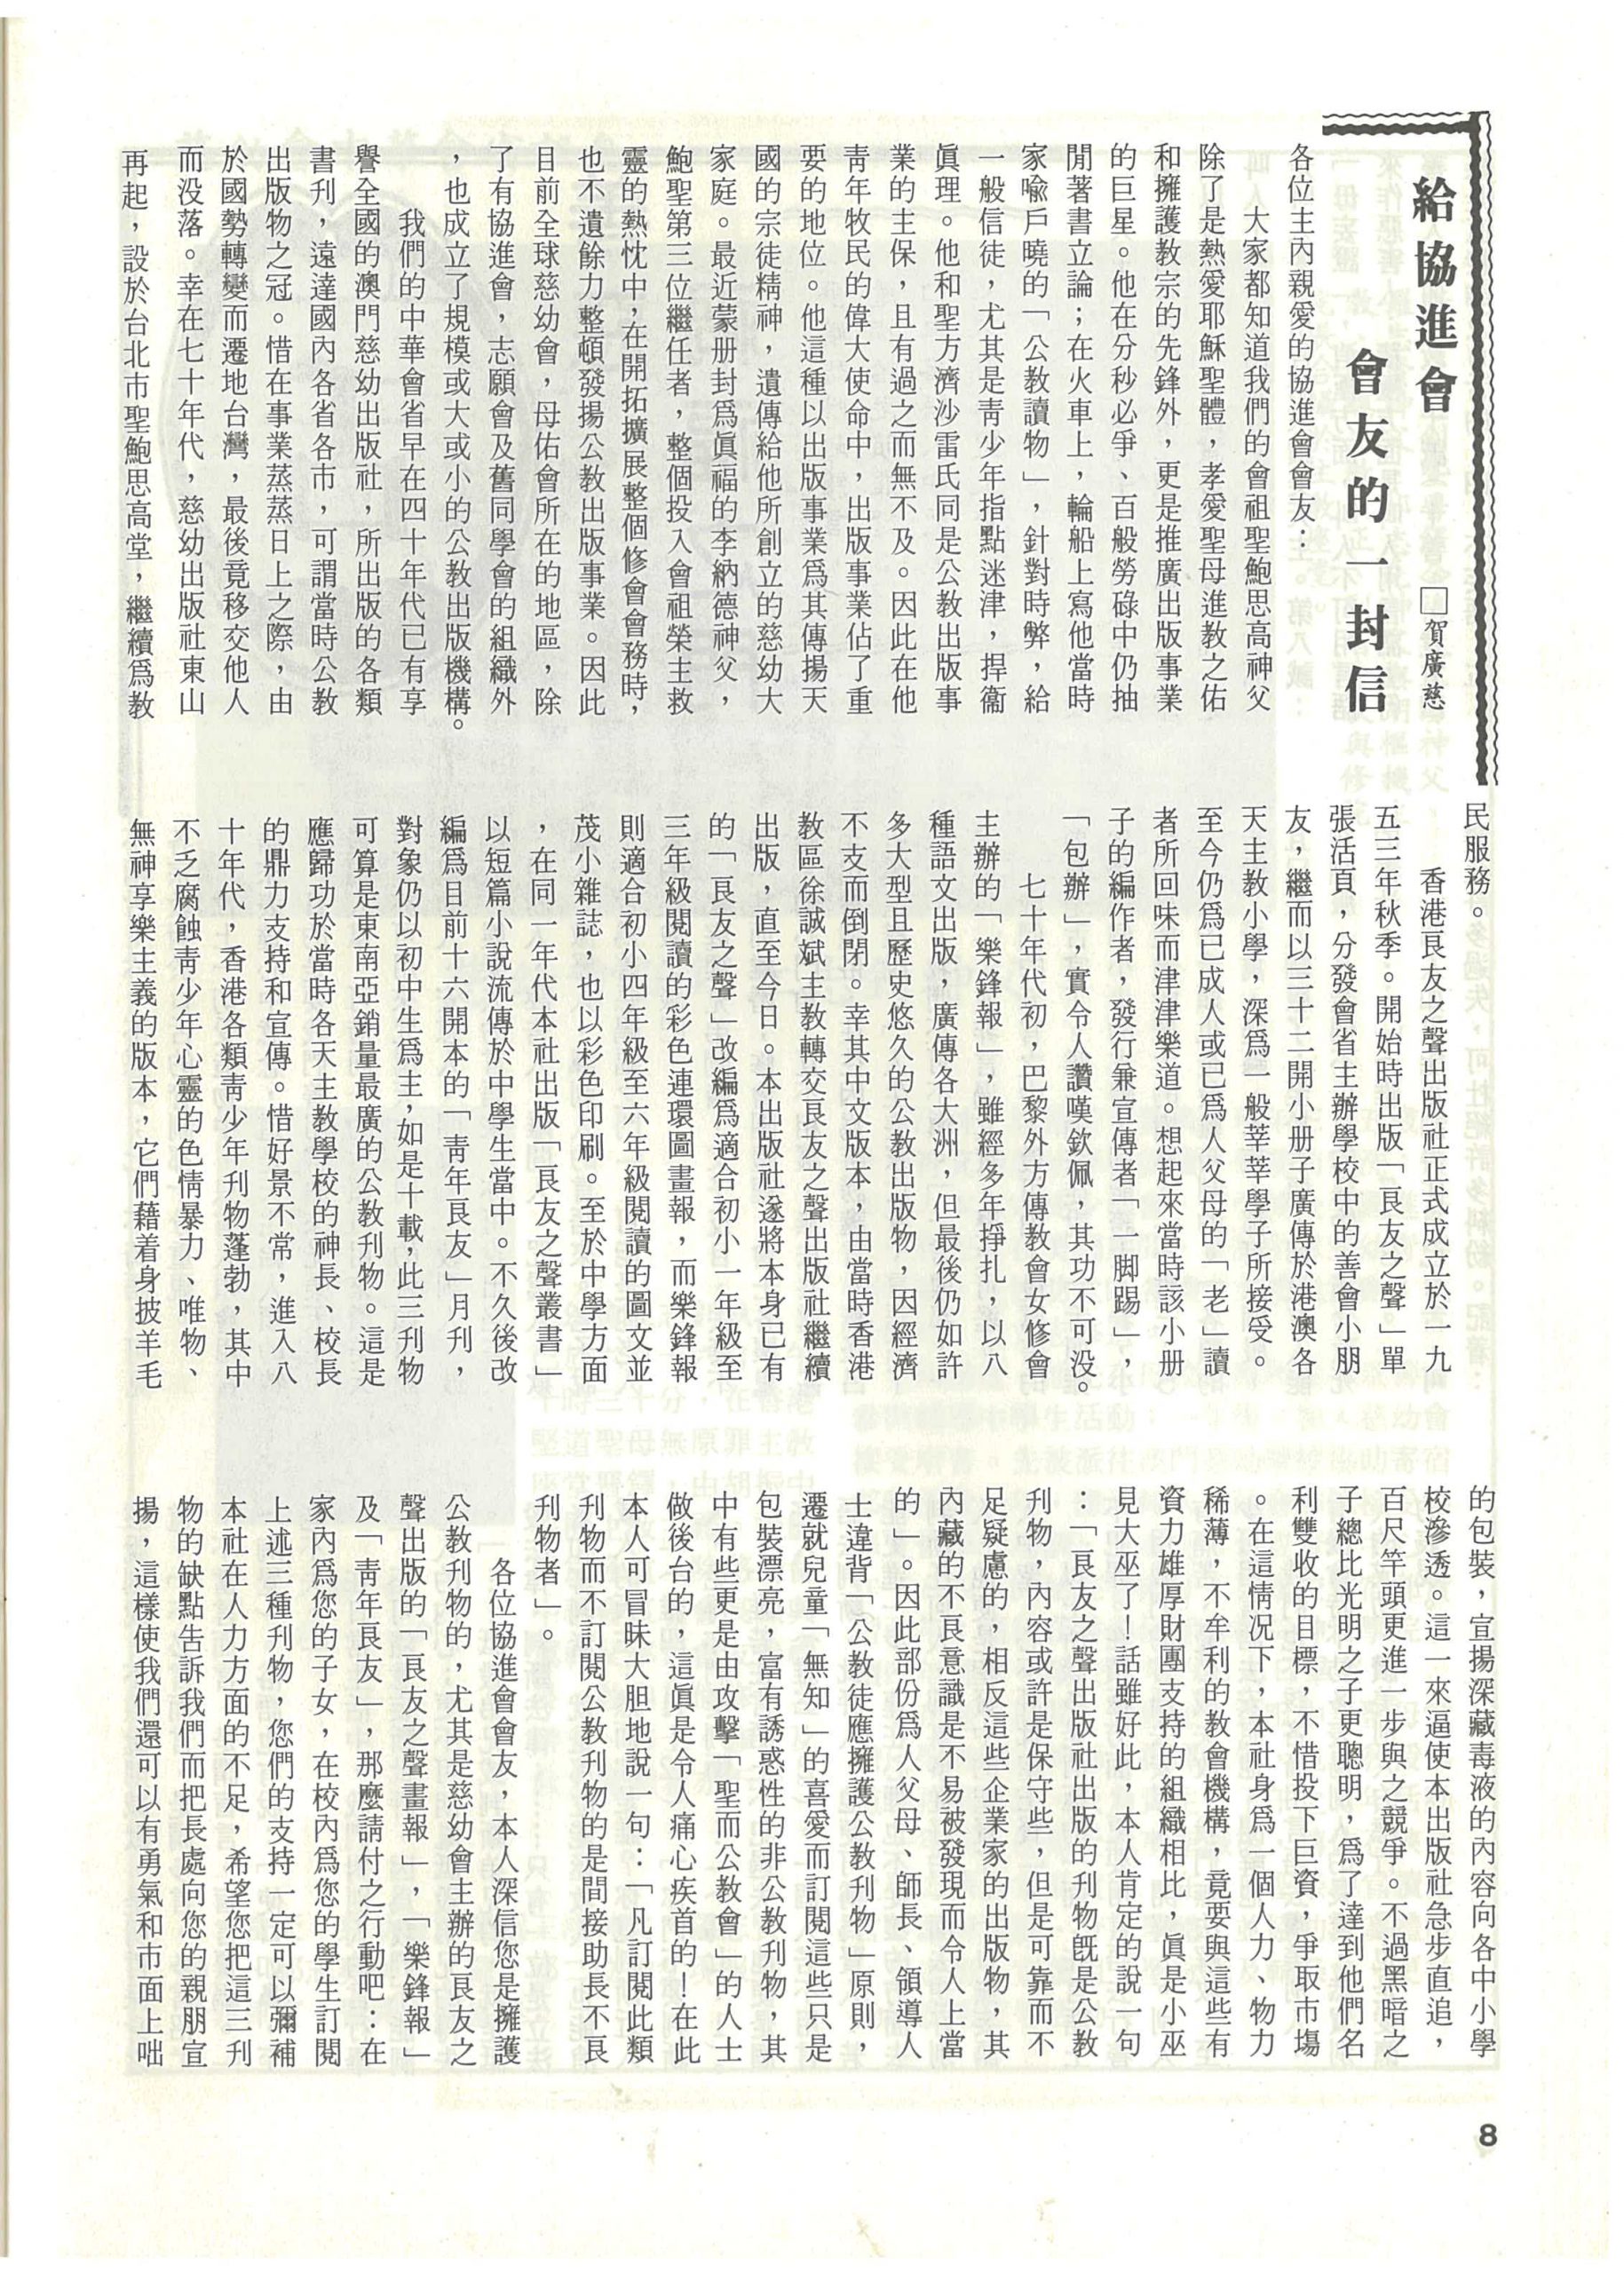 給協進會
會友的一封信
□賀廣慈
各位主內親愛的協進會會友：
大家都知道我們的會祖聖鮑思高神父
除了是熱愛耶穌聖體，孝愛聖母進教之佑
和擁護教宗的先鋒外，更是推廣出版事業
的巨星。他在分秒必爭、百般勞碌中仍抽
閒著書立論；在火車上，輪船上寫他當時
家喩戶曉的「公教讀物」，針對時弊，給
一般信徒，尤其是靑少年指點迷津，捍衞
眞理。他和聖方濟沙雷氏同是公教出版事
業的主保，且有過之而無不及。因此在他
靑年牧民的偉大使命中，出版事業佔了重
要的地位。他這種以出版事業爲其傳揚天
國的宗徒精神，遺傳給他所創立的慈幼大
家庭。最近蒙册封爲眞福的李納德神父，
鮑聖第三位繼任者，整個投入會祖榮主救
靈的熱忱中，在開拓擴展整個修會會務時，
也不遺餘力整頓發揚公教出版事業。因此
目前全球慈幼會，母佑會所在的地區，除
了有協進會，志願會及舊同學會的組織外
，也成立了規模或大或小的公教出版機構。
我們的中華會省早在四十年代已有享
譽全國的澳門慈幼出版社，所出版的各類
書刊，遠達國內各省各市，可謂當時公教
出版物之冠。惜在事業蒸蒸日上之際，由
於國勢轉變而遷地台灣，最後竟移交他人
而没落。幸在七十年代，慈幼出版社東山
再起，設於台北市聖鮑思高堂，繼續爲教
民服務。
香港良友之聲出版社正式成立於一九
五三年秋季。開始時出版「良友之聲」單
張活頁，分發會省主辦學校中的善會小朋
友，繼而以三十二開小册子廣傳於港澳各
天主教小學，深爲一般莘莘學子所接受。
至今仍爲已成人或已爲人父母的「老」讀
者所回味而津津樂道。想起來當時該小册
子的編作者，發行兼宣傳者「一脚踢」，
「包辦」，實令人讚嘆欽佩，其功不可没。
七十年代初，巴黎外方傳教會女修會
主辦的「樂鋒報」，雖經多年掙扎，以八
種語文出版，廣傳各大洲，但最後仍如許
多大型且歷史悠久的公教出版物，因經濟
不支而倒閉。幸其中文版本，由當時香港
教區徐誠斌主教轉交良友之聲出版社繼續
出版，直至今日。本出版社遂將本身已有
的「良友之聲」改編爲適合初小一年級至
三年級閱讀的彩色連環圖畫報，而樂鋒報
則適合初小四年級至六年級閱讀的圖文並
茂小雜誌，也以彩色印刷。至於中學方面
，在同一年代本社出版「良友之聲叢書」
以短篇小說流傳於中學生當中。不久後改
編爲目前十六開本的「靑年良友」月刋，
對象仍以初中生爲主，如是十載，此三刋物
可算是東南亞銷量最廣的公教刋物。這是
應歸功於當時各天主教學校的神長、校長
的鼎力支持和宣傳。惜好景不常，進入八
十年代，香港各類靑少年刋物蓬勃，其中
不乏腐蝕靑少年心靈的色情暴力、唯物、
無神享樂主義的版本，它們藉着身披羊毛
的包裝，宣揚深藏毒液的內容向各中小學
校滲透。這一來逼使本出版社急步直追，
百尺竿頭更進一步與之競爭。不過黑暗之
子總比光明之子更聰明，爲了達到他們名
利雙收的目標，不惜投下巨資，爭取市塲
。在這情况下，本社身爲一個人力、物力
稀薄，不牟利的教會機構，竟要與這些有
資力雄厚財團支持的組織相比，眞是小巫
見大巫了！話雖好此，本人肯定的說一句
：「良友之聲出版社出版的刋物旣是公教
刋物，內容或許是保守些，但是可靠而不
足疑慮的，相反這些企業家的出版物，其
內藏的不良意識是不易被發現而令人上當
的」。因此部份爲人父母、師長、領導人
士違背「公教徒應擁護公教刋物」原則，
遷就兒童「無知」的喜愛而訂閱這些只是
包裝漂亮，富有誘惑性的非公教刋物，其
中有些更是由攻擊「聖而公教會」的人士
做後台的，這眞是令人痛心疾首的！在此
本人可冒昧大胆地說一句：「凡訂閱此類
刋物而不訂閱公教刋物的是間接助長不良
刋物者」。
各位協進會會友，本人深信您是擁護
公教刋物的，尤其是慈幼會主辦的良友之
聲出版的「良友之聲畫報」，「樂鋒報」
及「靑年良友」，那麼請付之行動吧：在
家內爲您的子女，在校內爲您的學生訂閱
上述三種刋物，您們的支持一定可以彌補
本社在人力方面的不足，希望您把這三刋
物的缺點告訴我們而把長處向您的親朋宣
揚，這樣使我們還可以有勇氣和市面上咄
8